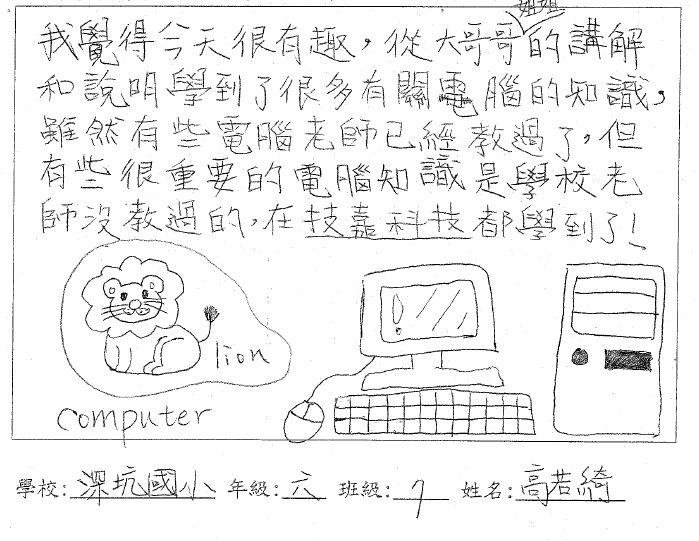 姐姐
我覺得今天很有趣，從大哥哥的講解
和說明學到了很多有關電腦的知識，
雖然有些電腦老師已經教過了，但
有些很重要的電腦知識是學校老
師沒教過的，在技嘉科技都學到了！
lion
computer
學校：深坑國小 年級：六 班級：7 姓名：高若綺